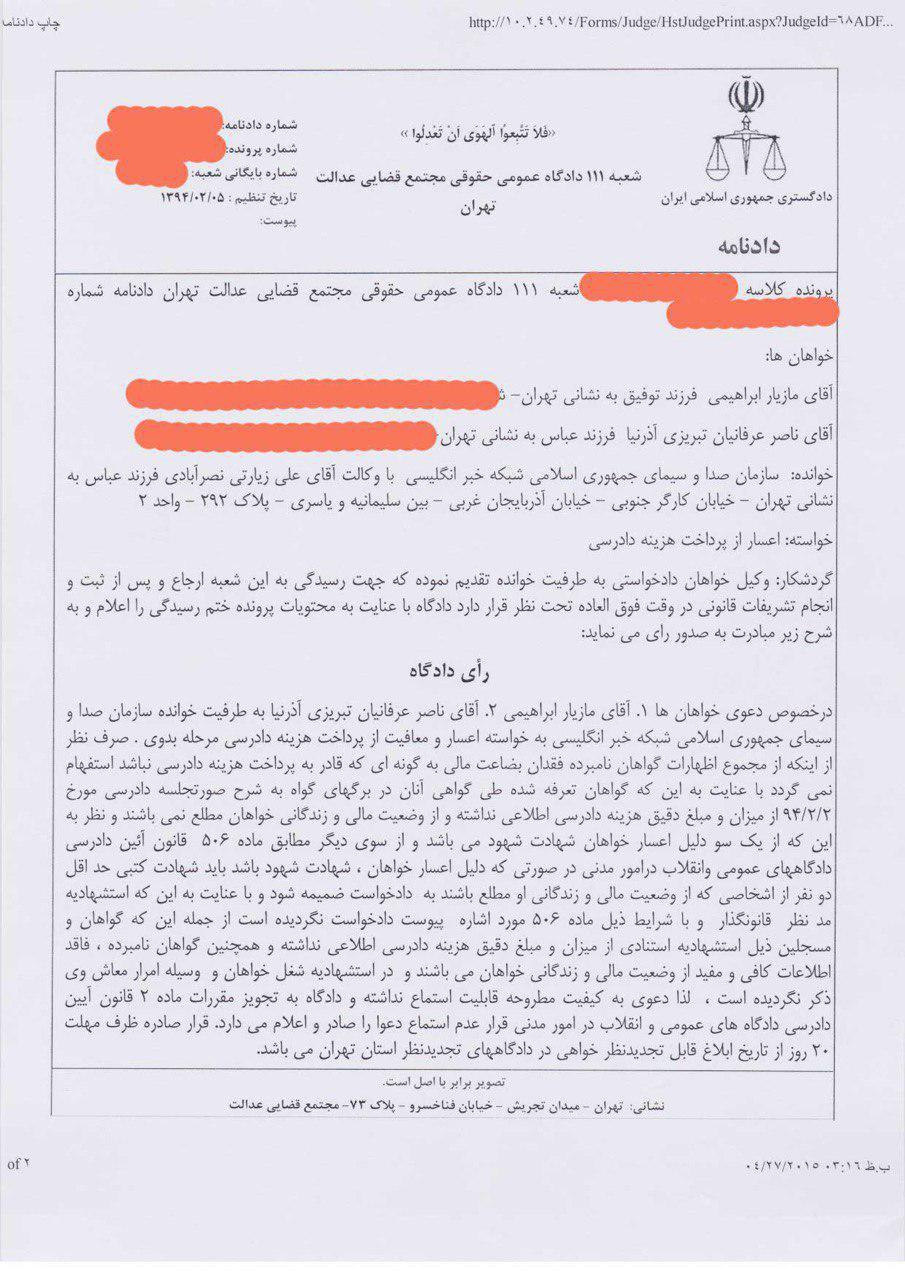 چاپ دادنامه
http://١٠.٢.٤٩.٧٤/Forms/Judge/HstJudgePrint.aspx?JudgeId=٦٨ADF...
دادگستری جمهوری اسلامی ایران
دادنامه
«فَلاَ تَتَّبِعوُا اَلهَوَی اَنْ تَعْدِلُوا»
شعبه ۱۱۱ دادگاه عمومی حقوقی مجتمع قضایی عدالت
تهران
شماره دادنامه:
شماره پرونده:
شماره بایگانی شعبه:
تاریخ تنظیم : ۱۳۹۴/۰۲/۰۵
پیوست:
پرونده کلاسه شعبه ۱۱۱ دادگاه عمومی حقوقی مجتمع قضایی عدالت تهران دادنامه شماره
خواهان ها:
آقای مازیار ابراهیمی فرزند توفیق به نشانی تهران-
آقای ناصر عرفانیان تبریزی آذرنیا فرزند عباس به نشانی تهران-
خوانده: سازمان صدا و سیمای جمهوری اسلامی شبکه خبر انگلیسی با وکالت آقای علی زیارتی نصرآبادی فرزند عباس به
نشانی تهران - خیابان کارگر جنوبی - خیابان آذربایجان غربی - بین سلیمانیه و یاسری - پلاک ۲۹۲ - واحد ۲
خواسته: اعسار از پرداخت هزینه دادرسی
گردشکار: وکیل خواهان دادخواستی به طرفیت خوانده تقدیم نموده که جهت رسیدگی به این شعبه ارجاع و پس از ثبت و
انجام تشریفات قانونی در وقت فوق العاده تحت نظر قرار دارد دادگاه با عنایت به محتویات پرونده ختم رسیدگی را اعلام و به
شرح زیر مبادرت به صدور رای می نماید:
رأی دادگاه
درخصوص دعوی خواهان ها ۱. آقای مازیار ابراهیمی ۲. آقای ناصر عرفانیان تبریزی آذرنیا به طرفیت خوانده سازمان صدا و
سیمای جمهوری اسلامی شبکه خبر انگلیسی به خواسته اعسار و معافیت از پرداخت هزینه دادرسی مرحله بدوی . صرف نظر
از اینکه از مجموع اظهارات گواهان نامبرده فقدان بضاعت مالی به گونه ای که قادر به پرداخت هزینه دادرسی نباشد استفهام
نمی گردد با عنایت به این که گواهان تعرفه شده طی گواهی آنان در برگهای گواه به شرح صورتجلسه دادرسی مورخ
۹۴/۲/۲ از میزان و مبلغ دقیق هزینه دادرسی اطلاعی نداشته و از وضعیت مالی و زندگانی خواهان مطلع نمی باشند و نظر به
این که از یک سو دلیل اعسار خواهان شهادت شهود می باشد و از سوی دیگر مطابق ماده ۵۰۶ قانون آئین دادرسی
دادگاههای عمومی وانقلاب درامور مدنی در صورتی که دلیل اعسار خواهان ، شهادت شهود باشد باید شهادت کتبی حد اقل
دو نفر از اشخاصی که از وضعیت مالی و زندگانی او مطلع باشند به دادخواست ضمیمه شود و با عنایت به این که استشهادیه
مد نظر قانونگذار و با شرایط ذیل ماده ۵۰۶ مورد اشاره پیوست دادخواست نگردیده است از جمله این که گواهان و
مسجلین ذیل استشهادیه استنادی از میزان و مبلغ دقیق هزینه دادرسی اطلاعی نداشته و همچنین گواهان نامبرده ، فاقد
اطلاعات کافی و مفید از وضعیت مالی و زندگانی خواهان می باشند و در استشهادیه شغل خواهان و وسیله امرار معاش وی
ذکر نگردیده است ، لذا دعوی به کیفیت مطروحه قابلیت استماع نداشته و دادگاه به تجویز مقررات ماده ۲ قانون آیین
دادرسی دادگاه های عمومی و انقلاب در امور مدنی قرار عدم استماع دعوا را صادر و اعلام می دارد. قرار صادره ظرف مهلت
۲۰ روز از تاریخ ابلاغ قابل تجدیدنظر خواهی در دادگاههای تجدیدنظر استان تهران می باشد.
تصویر برابر با اصل است.
نشانی: تهران - میدان تجریش - خیابان فناخسرو - پلاک ۷۳- مجتمع قضایی عدالت
of ٢
٠٤/٢٧/٢٠١٥ ٠٣:١٦ ب.ظ